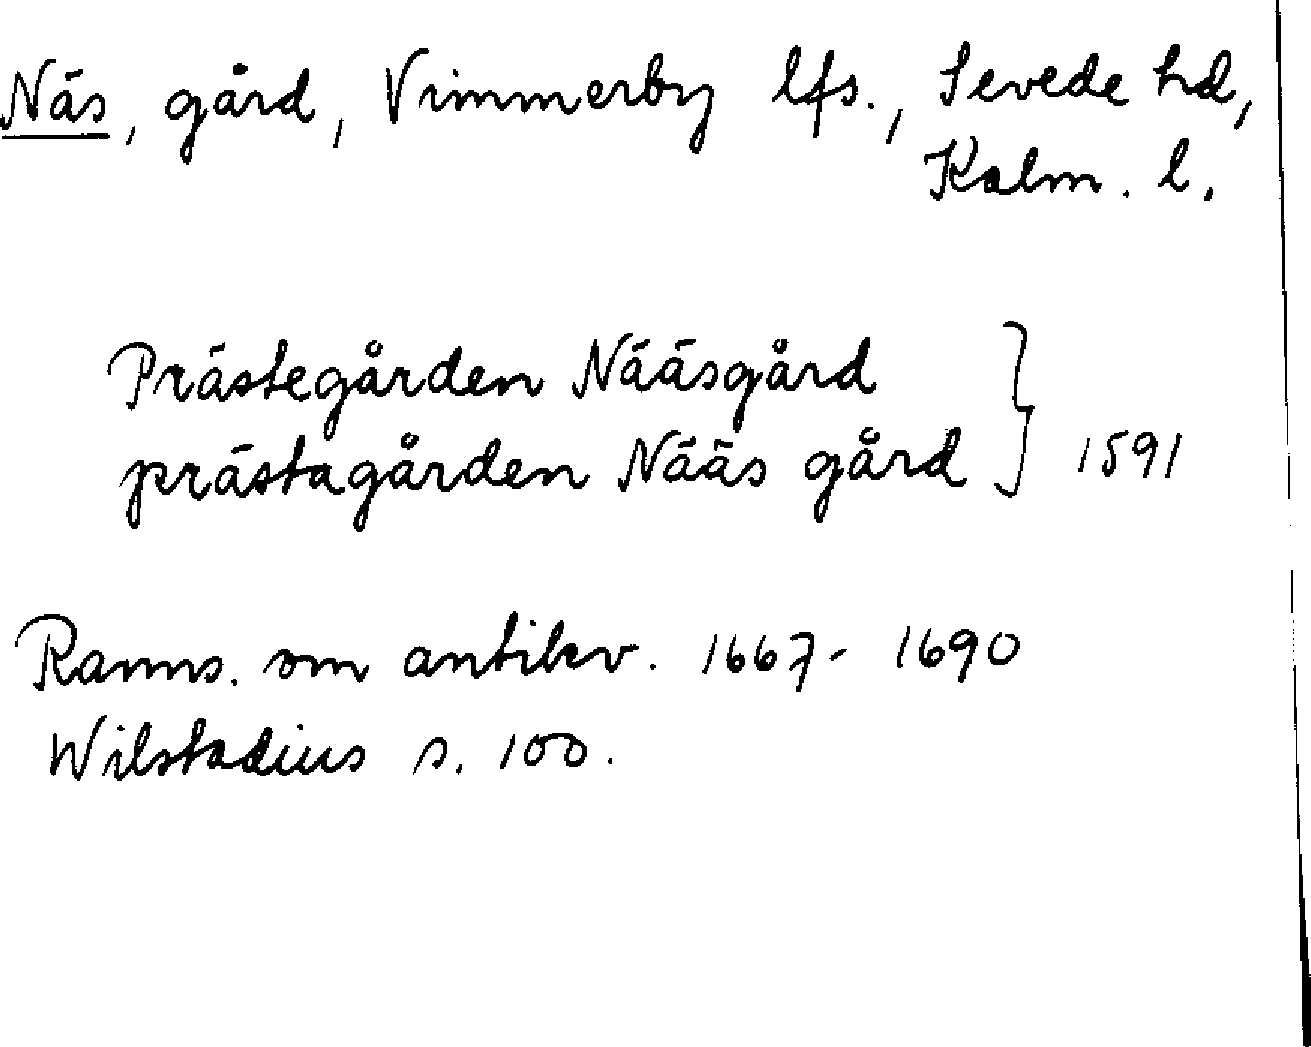 Näs, gård, Vimmerby lfs., Sevede hd,
Kalm. l.
Prästegården Nääsgård
prästagården Nääs gård } 1591
Ranns. om antikv. 1667-1690
Wilstadius s. 100.